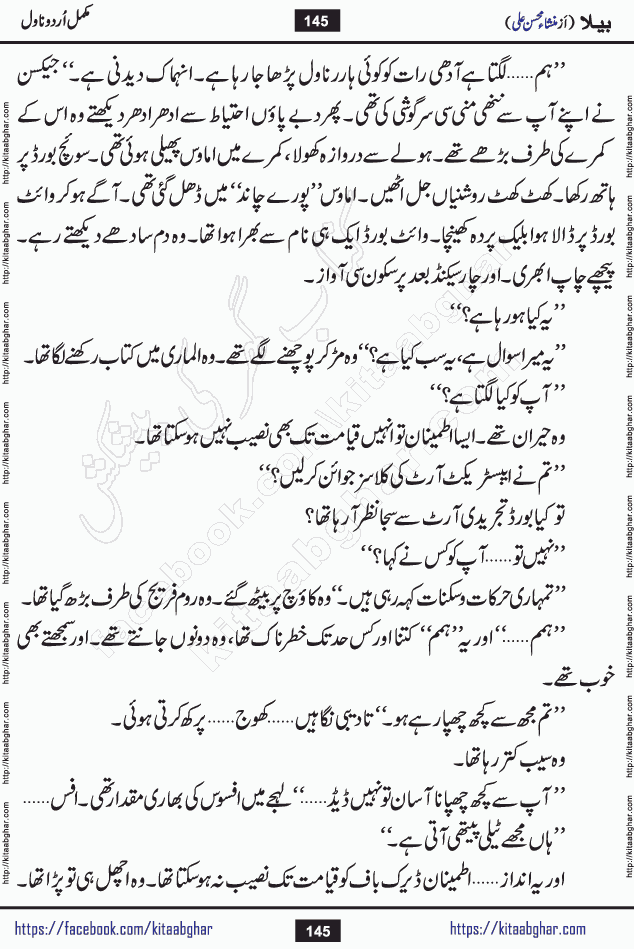 بیلا (از منشاء محسن علی) 145 مکمل اُردو ناول
’’ہم......لگتا ہے آدھی رات کو کوئی ہارر ناول پڑھا جا رہا ہے۔ انہماک دیدنی ہے۔‘‘ جیکسن
نے اپنے آپ سے ننھی منی سی سرگوشی کی تھی۔ پھر دبے پاؤں احتیاط سے ادھر ادھر دیکھتے وہ اس کے
کمرے کی طرف بڑھے تھے۔ ہولے سے دروازہ کھولا، کمرے میں اماوس پھیلی ہوئی تھی۔ سوئچ بورڈ پر
ہاتھ رکھا۔ کھٹ کھٹ روشنیاں جل اٹھیں۔ اماوس ’’پورے چاند‘‘ میں ڈھل گئی تھی۔ آگے ہو کر وائٹ
بورڈ پر ڈالا ہوا بلیک پردہ کھینچا۔ وائٹ بورڈ ایک ہی نام سے بھرا ہوا تھا۔ وہ دم سادھے دیکھتے رہے۔
پیچھے چاپ ابھری۔ اور چار سیکنڈ بعد پر سکون سی آواز۔
’’یہ کیا ہو رہا ہے؟‘‘
’’یہ میرا سوال ہے، یہ سب کیا ہے؟‘‘ وہ مڑ کر پوچھنے لگے تھے۔ وہ الماری میں کتاب رکھنے لگا تھا۔
’’آپ کو کیا لگتا ہے؟‘‘
وہ حیران تھے۔ ایسا اطمینان تو انہیں قیامت تک بھی نصیب نہیں ہو سکتا تھا۔
’’تم نے ایبسٹریکٹ آرٹ کی کلاسز جوائن کر لیں؟‘‘
تو کیا بورڈ تجریدی آرٹ سے سجا نظر آ رہا تھا؟
’’نہیں تو......آپ کو کس نے کہا؟‘‘
’’تمہاری حرکات و سکنات کہہ رہی ہیں۔‘‘ وہ کاؤچ پر بیٹھ گئے۔ وہ روم فریج کی طرف بڑھ گیا تھا۔
’’ہم......‘‘ اور یہ ’’ہم‘‘ کتنا اور کس حد تک خطرناک تھا، وہ دونوں جانتے تھے۔ اور سمجھتے بھی
خوب تھے۔
’’تم مجھ سے کچھ چھپا رہے ہو۔‘‘ تادیبی نگاہیں......کھوج......پرکھ کرتی ہوئی۔
وہ سیب کتر رہا تھا۔
’’آپ سے کچھ چھپانا آسان تو نہیں ڈیڈ......‘‘ لہجے میں افسوس کی بھاری مقدار تھی۔ افس......
’’ہاں مجھے ٹیلی پیتھی آتی ہے۔‘‘
اور یہ انداز......اطمینان ڈیرک باف کو قیامت تک نصیب نہ ہو سکتا تھا۔ وہ اچھل ہی تو پڑا تھا۔
https://facebook.com/kitaabghar 145 https://kitaabghar.com
http://kitaabghar.com
کتاب گھر کی پیشکش
facebook.com/kitaabghar
kitaabghar.com